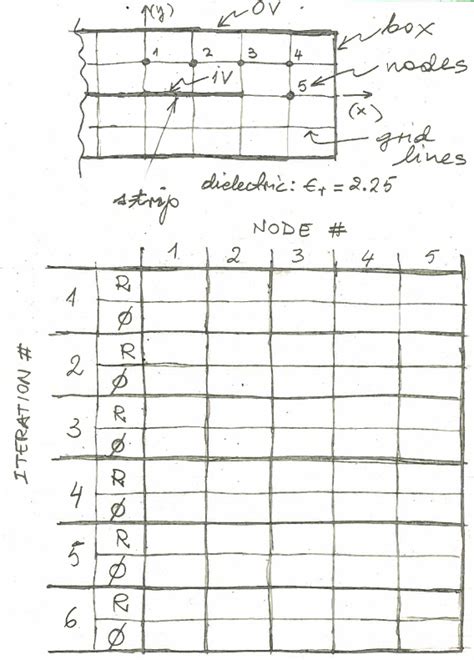 (y) 0V
box
1 2 3 4
nodes
1V
5
(x)
grid
lines
strip
dielectric: ϵr = 2.25
NODE #
1 2 3 4 5
ITERATION #
1 R
Φ
2 R
Φ
3 R
Φ
4 R
Φ
5 R
Φ
6 R
Φ